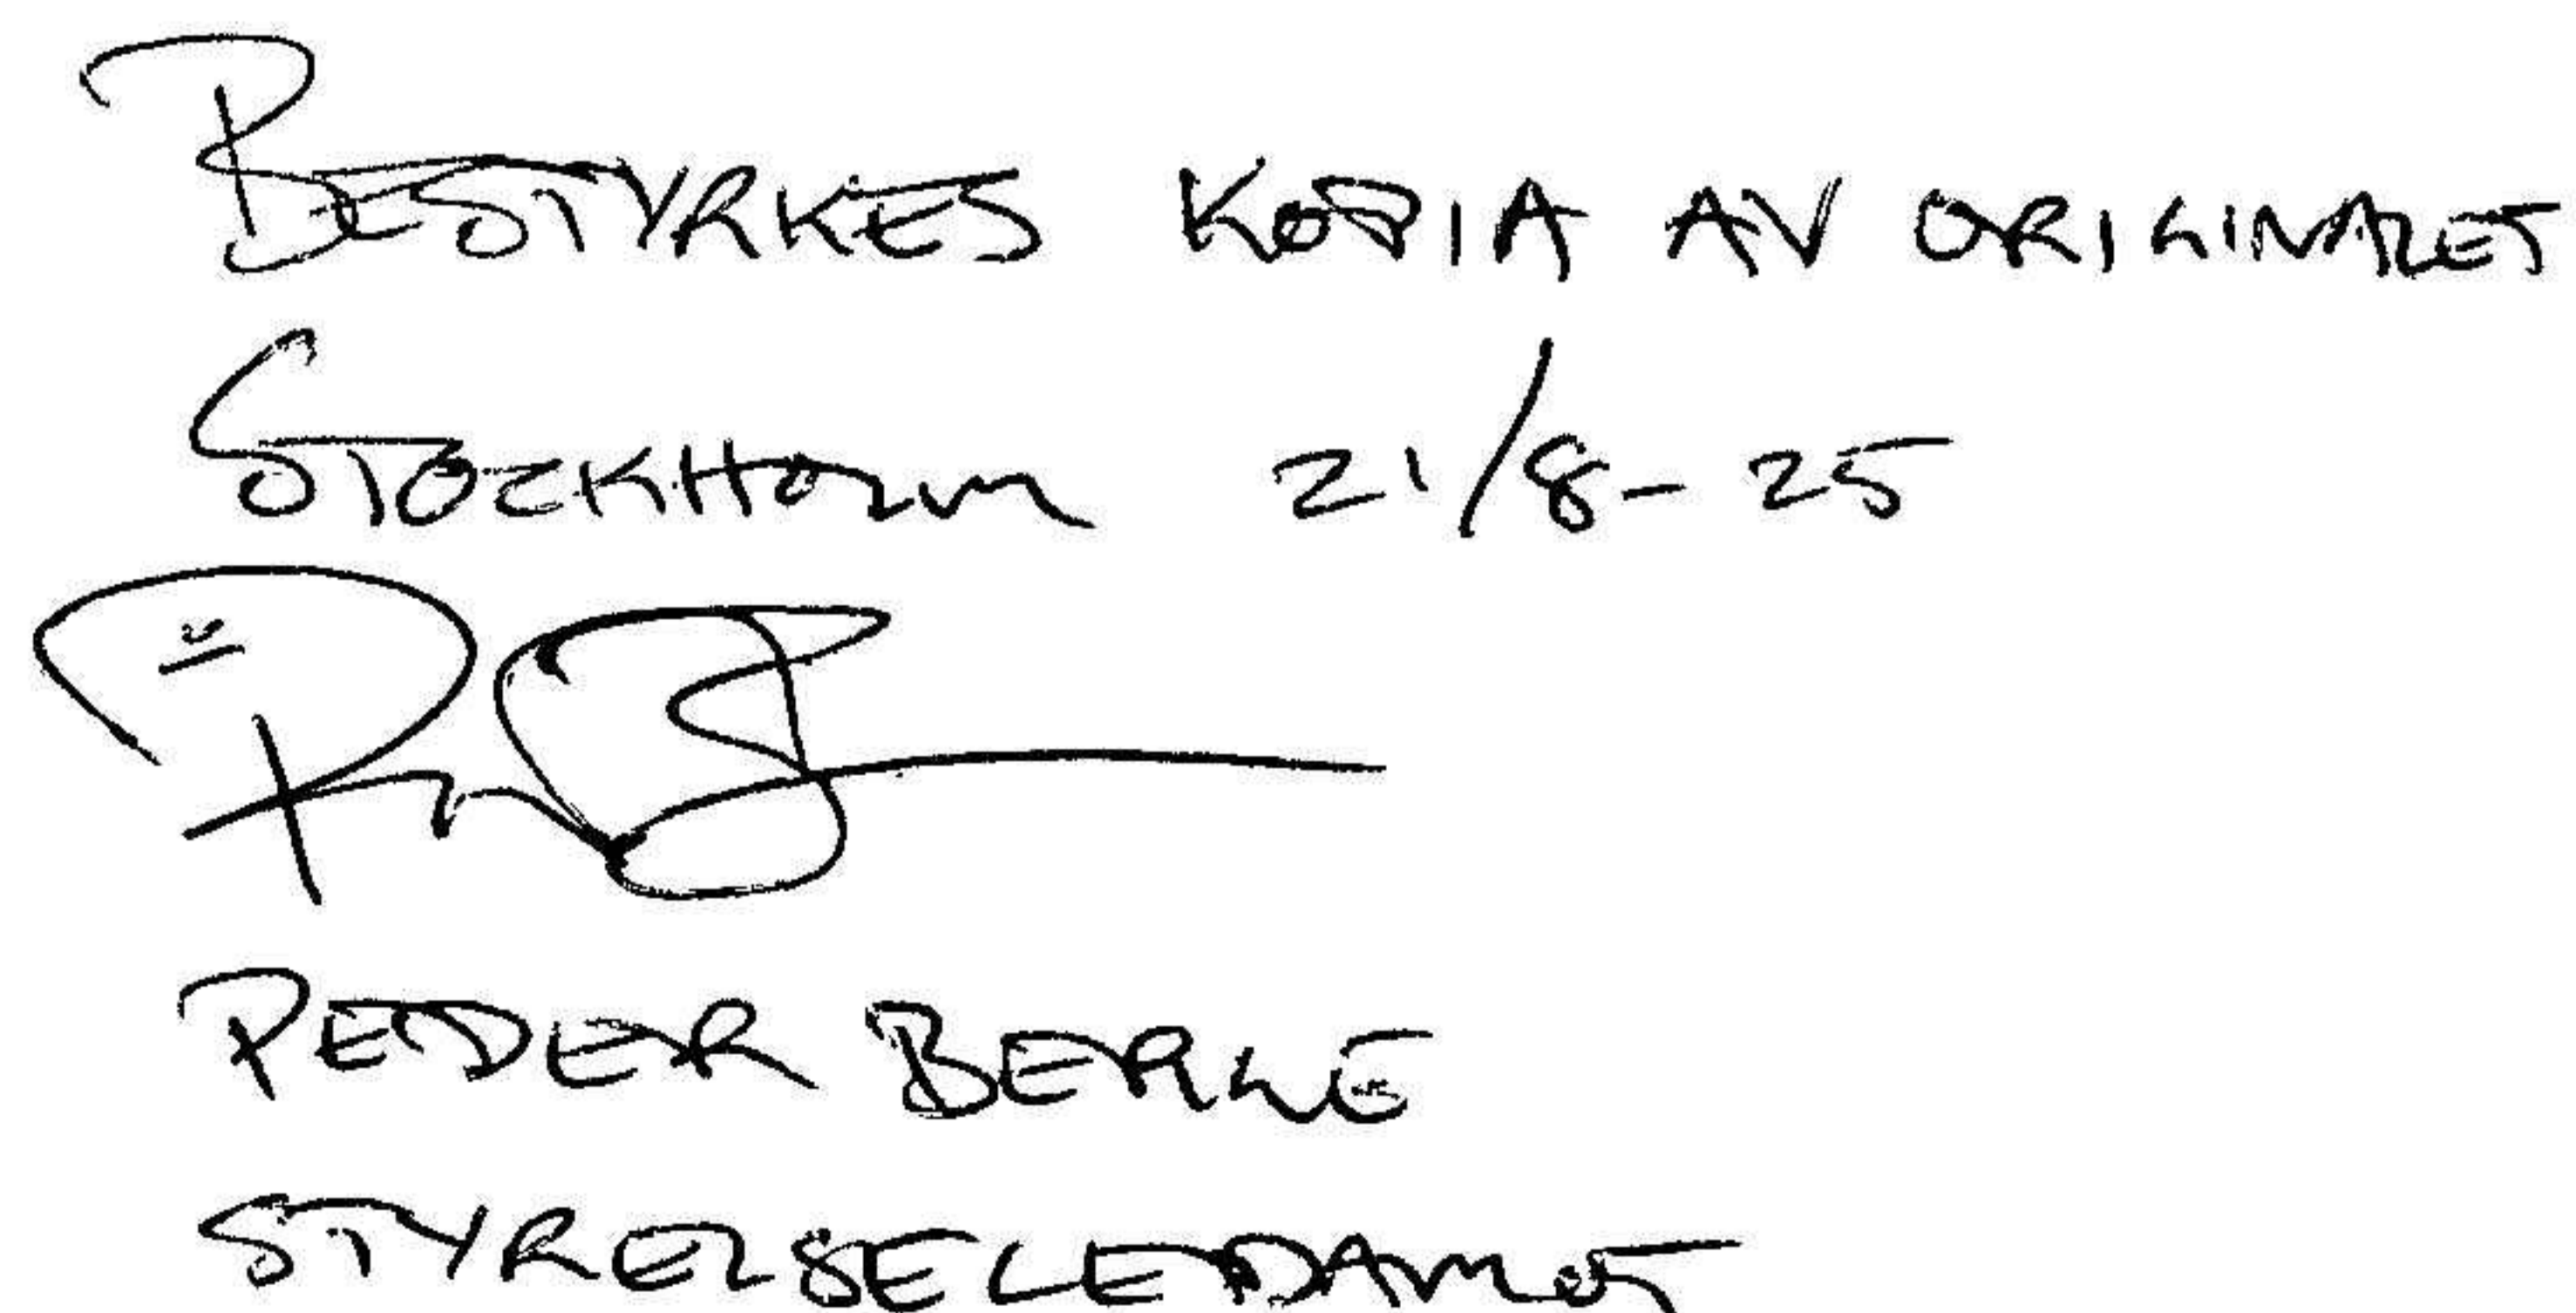 BESTYRKES KOPIA AV ORIGINALET
STOCKHOLM 21/8-25
PEDER BERGE
STYRELSELEDAMOT